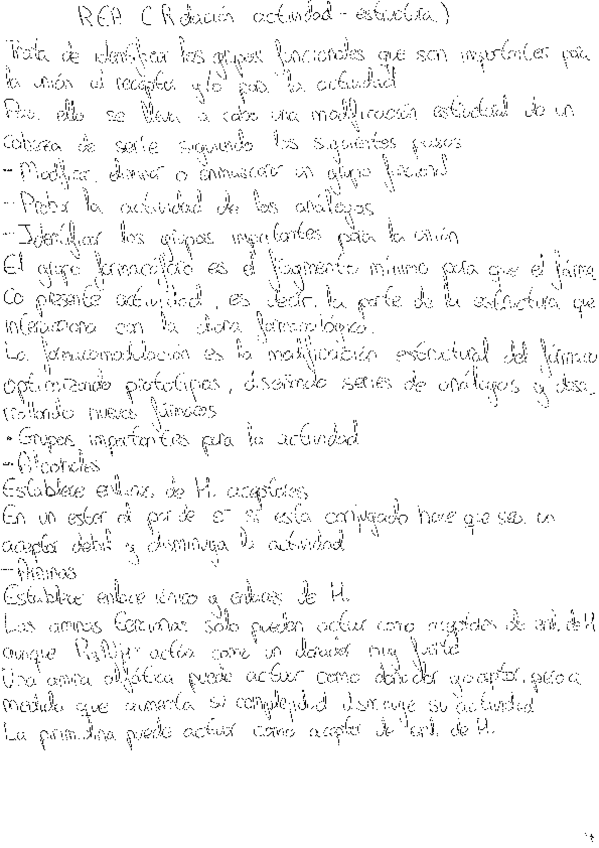 REA (Relación actividad-estructura)
Trata de identificar los grupos funcionales que son importantes para
la unión al receptor y/o para la actividad
Para ello se lleva a cabo una modificación estructural de un
cabeza de serie siguiendo los siguientes pasos
- Modificar, eliminar o enmascarar un grupo funcional
- Probar la actividad de los análogos
- Identificar los grupos importantes para la unión
El grupo farmacóforo es el fragmento mínimo para que el fárma
co presente actividad, es decir, la parte de la estructura que
interacciona con la diana farmacológica.
La farmacomodulación es la modificación estructural del fármaco
optimizando prototipos, diseñando series de análogos y desa
rrollando nuevos fármacos
• Grupos importantes para la actividad
- Alcoholes
Establece enlaces de H. aceptores
En un ester el par de e- si esta conjugado hace que sea un
aceptor debil y disminuya la actividad
- Aminas
Establece enlace iónico y enlaces de H.
Las aminas terciarias solo pueden actuar como aceptores de enl. de H
aunque R₃NH⁺ actúa como un donador muy fuerte
Una amina alifática puede actuar como donador y aceptor, pero a
medida que aumenta su complejidad disminuye su actividad
La puede actuar como aceptor de enl. de H.